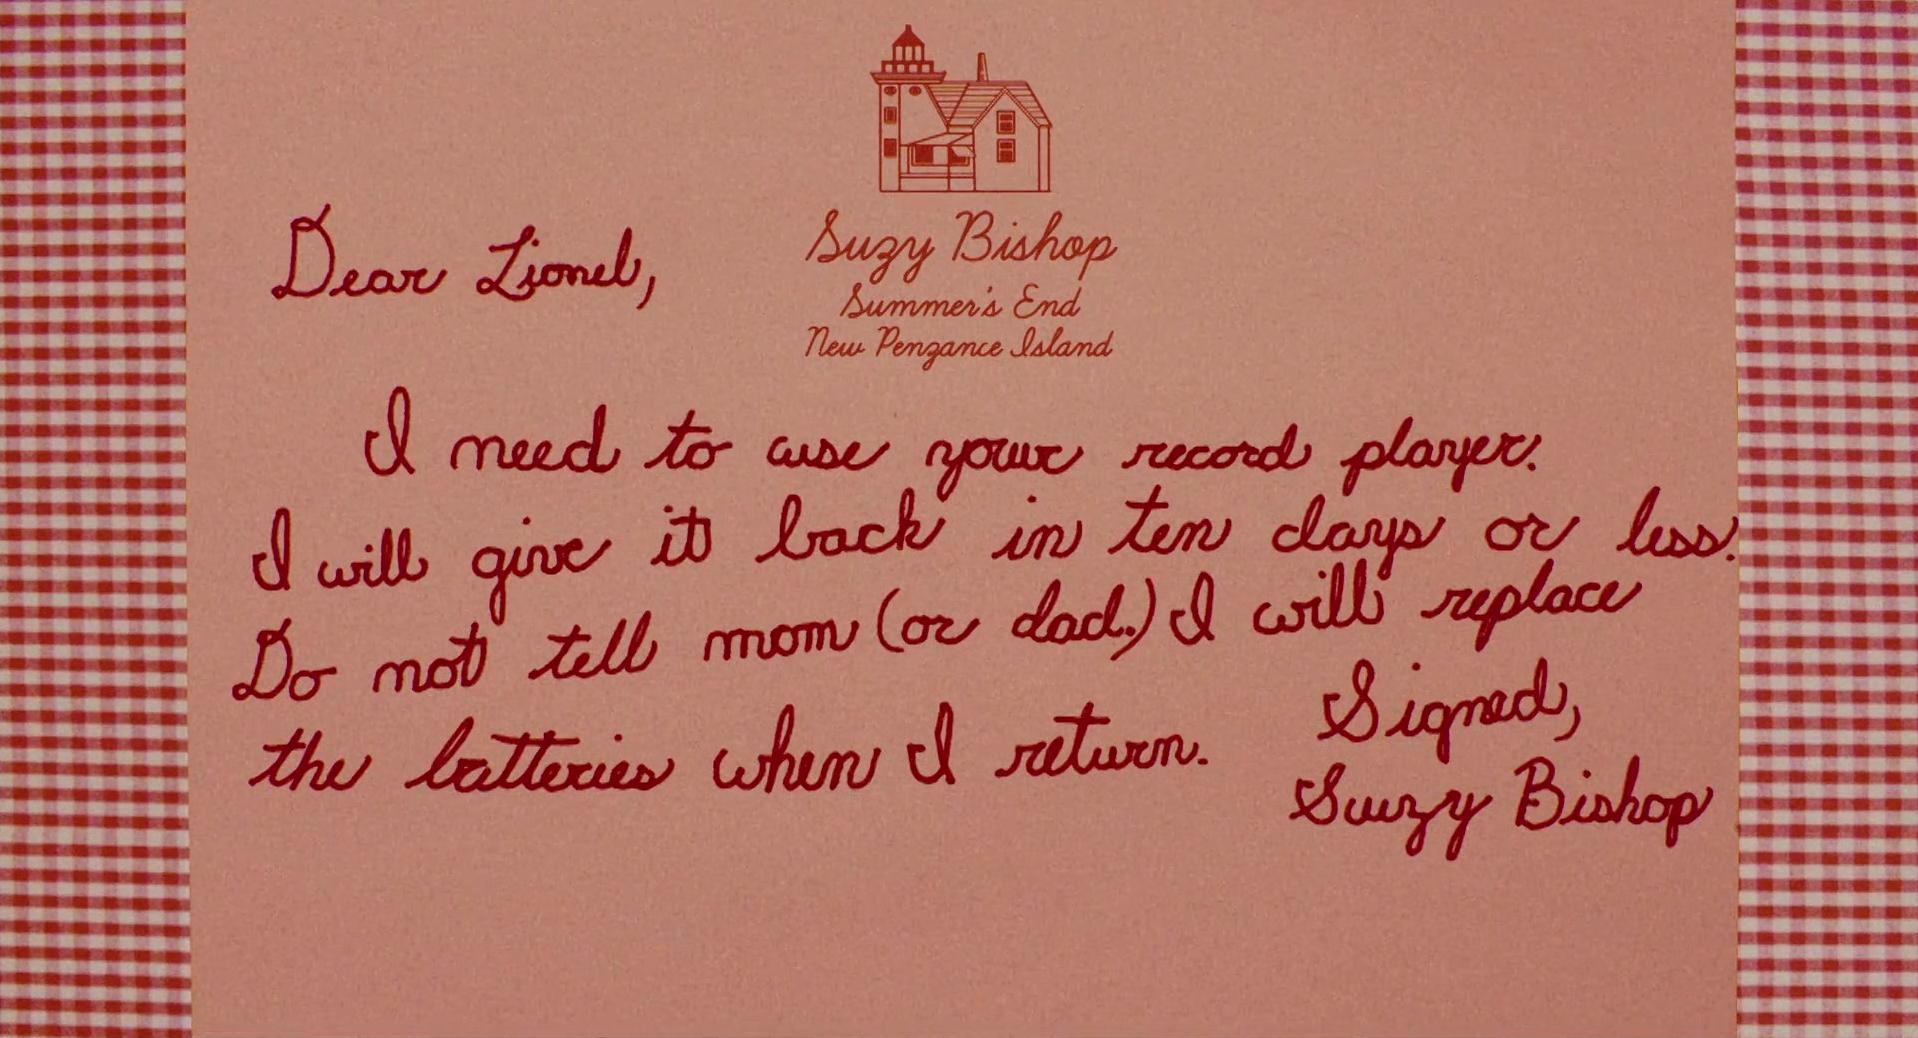 Suzy Bishop
Summer's End
New Penzance Island
Dear Lionel,
I need to use your record player.
I will give it back in ten days or less.
Do not tell mom (or dad.) I will replace
the batteries when I return.
Signed,
Suzy Bishop